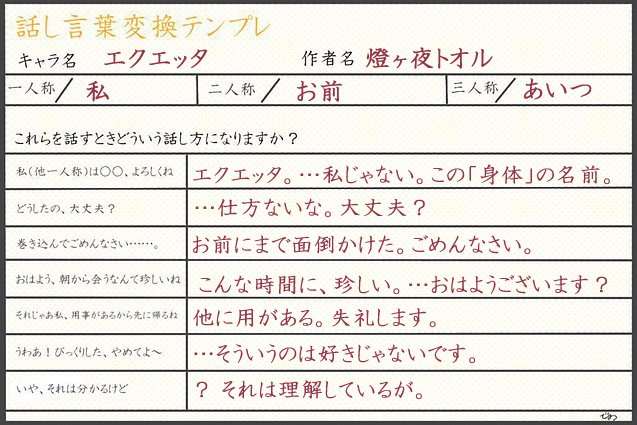 話し言葉変換テンプレ
キャラ名 エクエッタ 作者名 燈ヶ夜トオル
一人称/ 私 二人称/ お前 三人称/ あいつ
これらを話すときどういう話し方になりますか？
私(他一人称)は〇〇、よろしくね エクエッタ。…私じゃない。この「身体」の名前。
どうしたの、大丈夫？ …仕方ないな。大丈夫？
巻き込んでごめんなさい……。 お前にまで面倒かけた。ごめんなさい。
おはよう、朝から会うなんて珍しいね こんな時間に、珍しい。…おはようございます？
それじゃあ私、用事があるから先に帰るね 他に用がある。失礼します。
うわあ！びっくりした、やめてよ～ …そういうのは好きじゃないです。
いや、それは分かるけど ？ それは理解しているが。